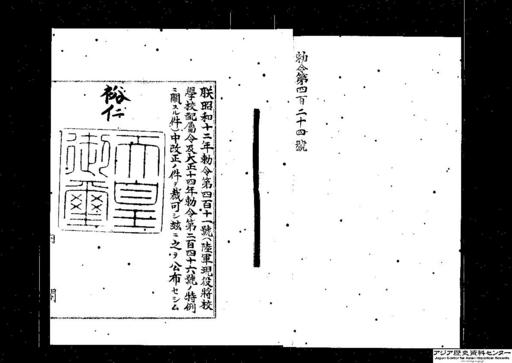 勅令第四百二十四號
朕昭和十二年勅令第四百十一號(陸軍現役將校
學校配屬令及大正十四年勅令第二百四十六號ノ特例
ニ關スル件)中改正ノ件ヲ裁可シ玆ニ之ヲ公布セシム
裕仁
天皇
御璽
アジア歴史資料センター
Japan Center for Asian Historical Records